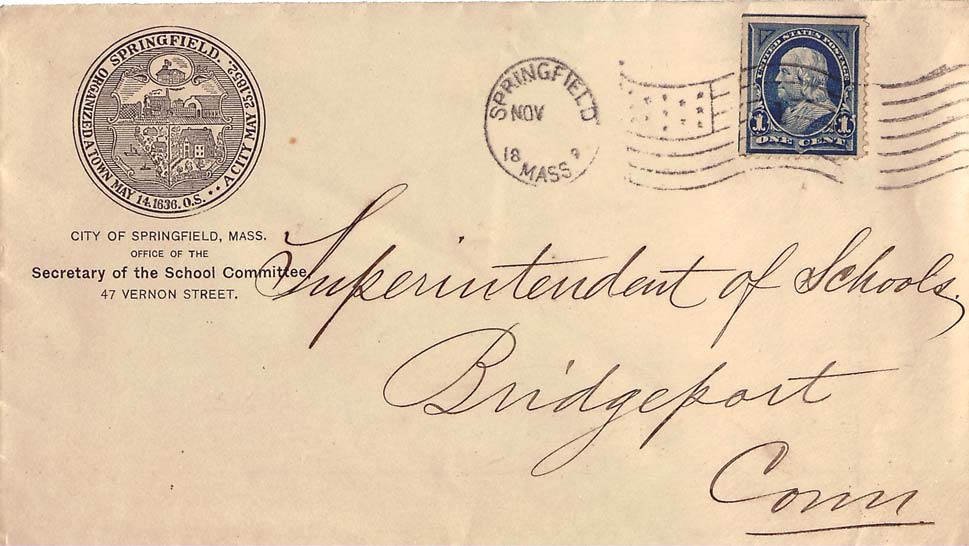 SPRINGFIELD.
ORGANIZED A TOWN MAY 14.1636. O.S. • • A CITY MAY 25.1852.
CITY OF SPRINGFIELD, MASS.
OFFICE OF THE
Secretary of the School Committee,
47 VERNON STREET.
SPRINGFIELD
NOV
18 9
MASS
UNITED STATES POSTAGE
1 1
ONE CENT
Superintendent of Schools,
Bridgeport
Conn